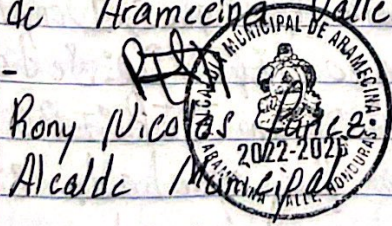 de Aramecina Valle
-
Rony Nicolás
Alcalde Municipal
ALCALDIA MUNICIPAL DE ARAMECINA
2022-2026
ARAMECINA, VALLE, HONDURAS